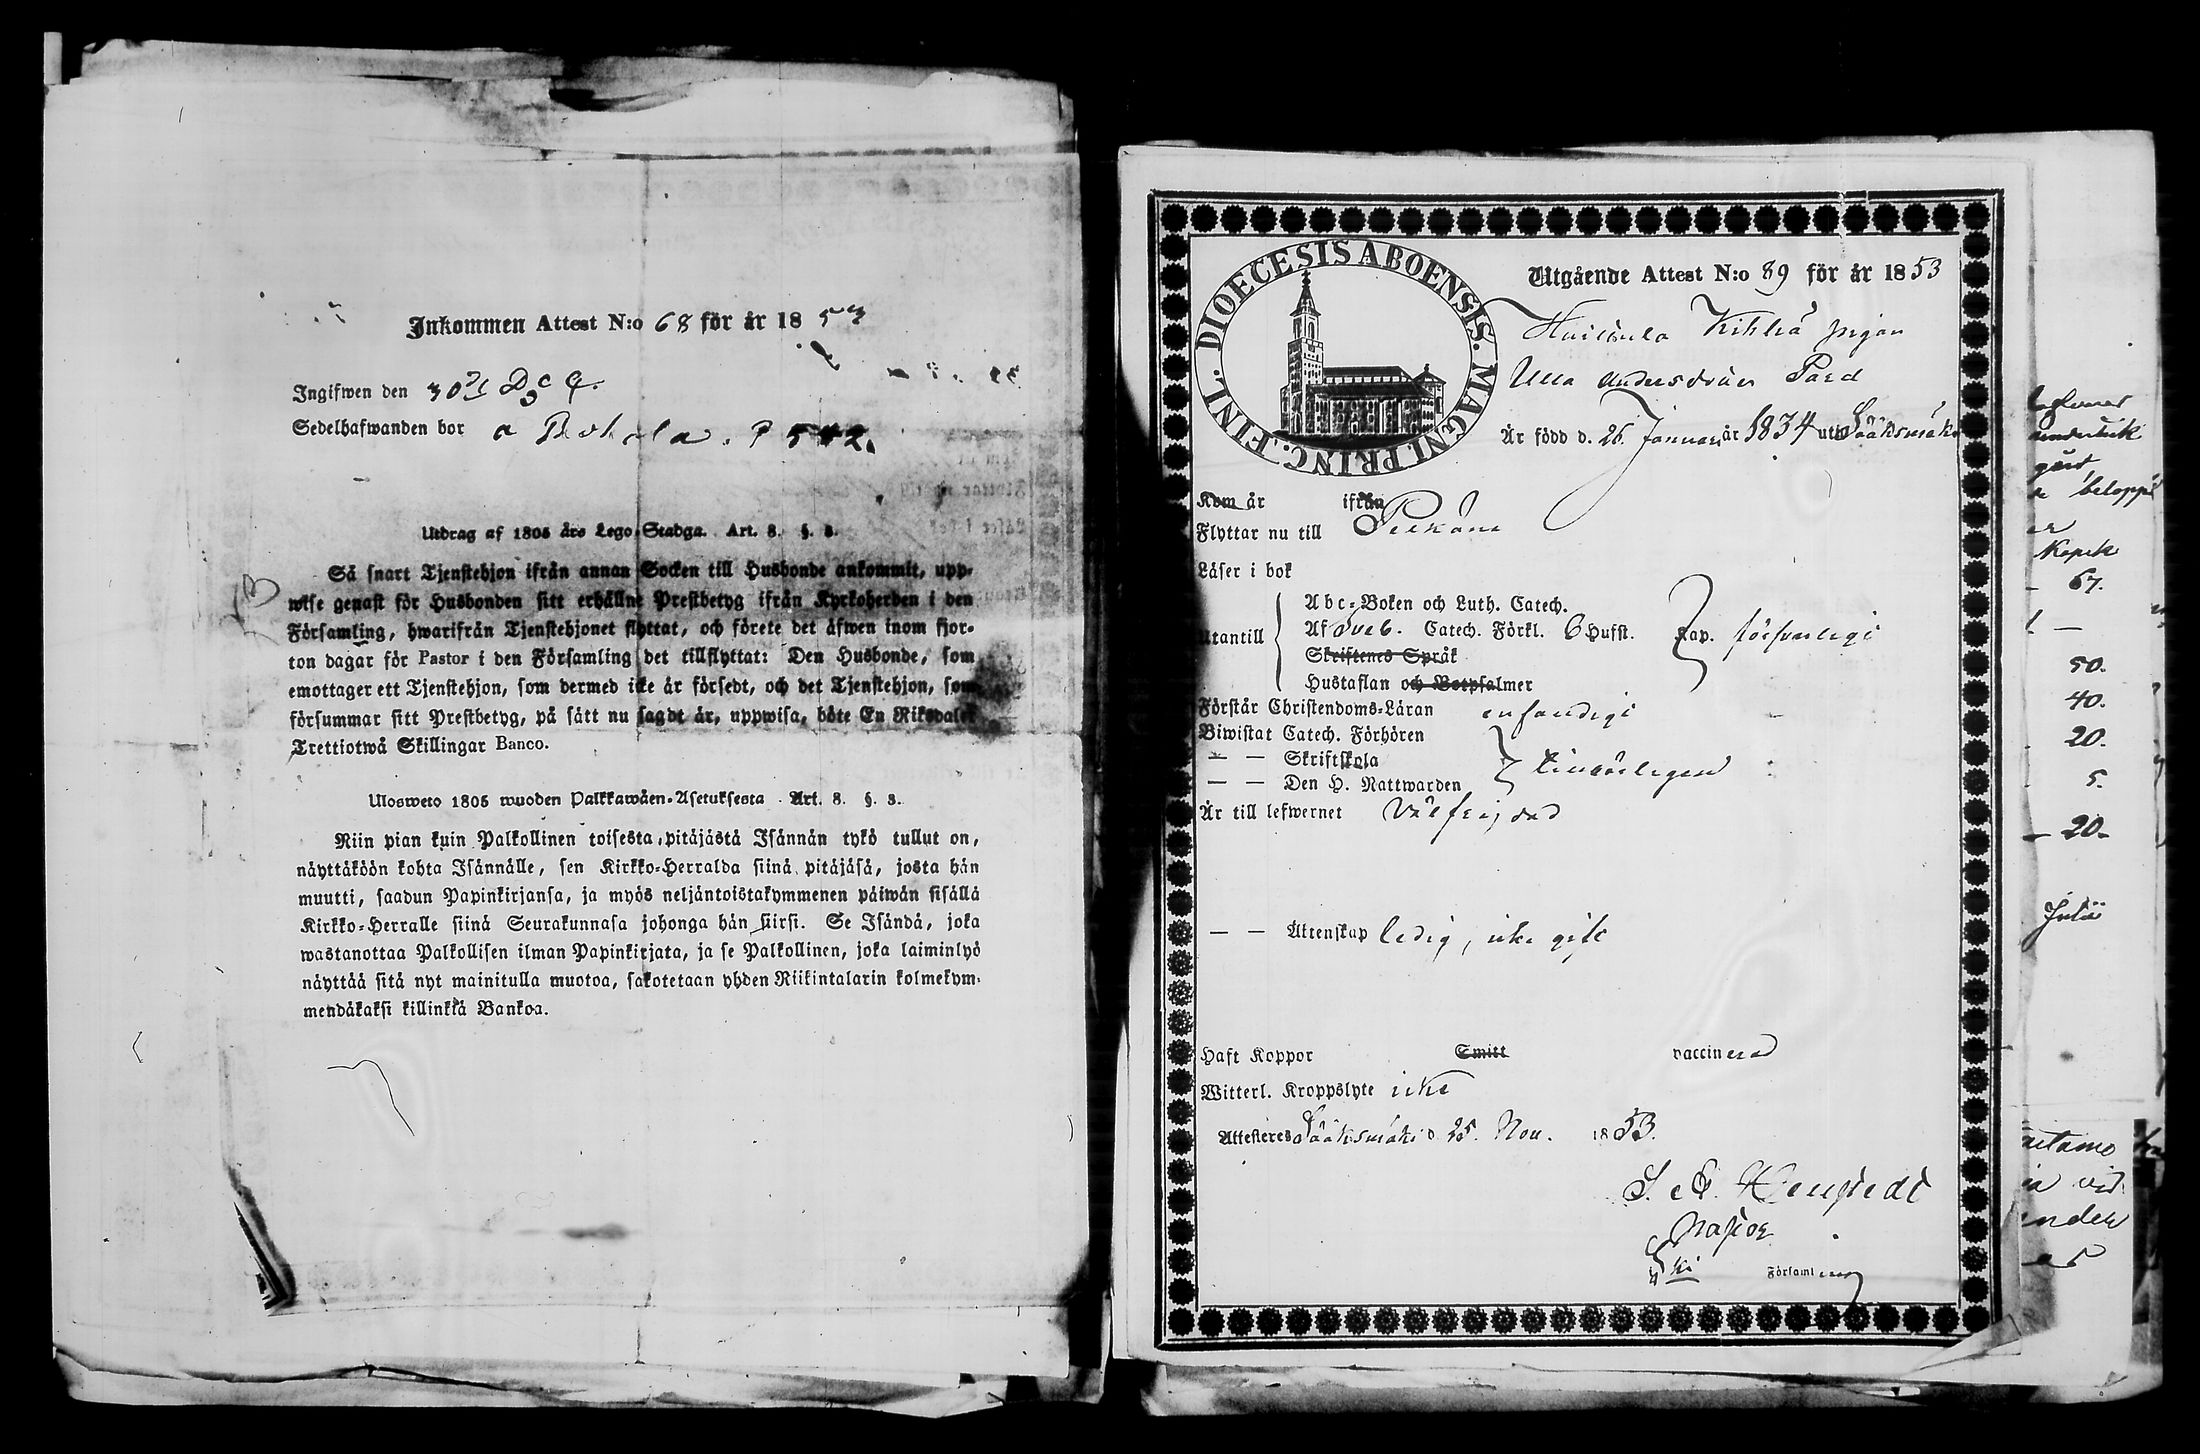 Inkommen Attest N:o 68 för år 1853
Ingifwen den 30 Dec
Sedelhafwanden bor a P 542.
Utdrag af 1805 års Lego-Stadga. Art. 8. §. 3.
Så snart Tjenstehjon ifrån annan Socken till Husbonde ankommit, upp-
wise genast för Husbonden sitt erhållne Prestbetyg ifrån Kyrkoherden i den
Församling, hwarifrån Tjenstehjonet flyttat, och förete det äfwen inom fjor-
ton dagar för Pastor i den Församling det tillflyttat: Den Husbonde, som
emottager ett Tjenstehjon, som dermed icke är försedt, och det Tjenstehjon, som
försummar sitt Prestbetyg, på sätt nu sagdt är, uppwisa, böte En Riksdaler
Trettiotwå Skillingar Banco.
Ulosweto 1805 wuoden Palkkawäen-Asetuksesta. Art. 8. §. 3.
Niin pian kuin Palkollinen toisesta pitäjästä Isännän tykö tullut on,
näyttäköön kohta Isännälle, sen Kirkko-Herralda siinä pitäjäsä, josta hän
muutti, saadun Papinkirjansa, ja myös neljäntoistakymmenen päiwän sisällä
Kirkko-Herralle siinä Seurakunnasa johonga hän siirsi. Se Isändä, joka
wastanottaa Palkollisen ilman Papinkirjata, ja se Palkollinen, joka laiminlyö
näyttää sitä nyt mainitulla muotoa, sakotetaan yhden Riikintalarin kolmekym-
mendäkaksi killinkiä Bankoa.
DIOECESIS ABOENSIS. MAGNI. PRINC. FINL.
Utgående Attest N:o 89 för år 1853
Huilinla pigan
Ulla Andersdotter
Är född d. 26 Januari år 1834 uti Sääksmäki
Kom år ifrån
Flyttar nu till Pelkäne
Läser i bok
Utantill
Abc-Boken och Luth. Catech.
Af Sveb. Catech. Förkl. 6 Hufst. Kap. försvarligt
Skriftenes Språk
Hustaflan och Botpsalmer
Förstår Christendoms-Läran enfaldigt
Biwistat Catech. Förhören
— — Skriftskola
— — Den H. Nattwarden
Är till lefwernet välfrejdad
— — Äktenskap ledig, icke gift
Haft Koppor Smitt vaccinerad
Witterl. Kroppslyte icke
Attesteres Sääksmäki d. 25. Nov. 1853.
Pastor
Församling
belopp
Kopek
67.
50.
40.
20.
5.
20.